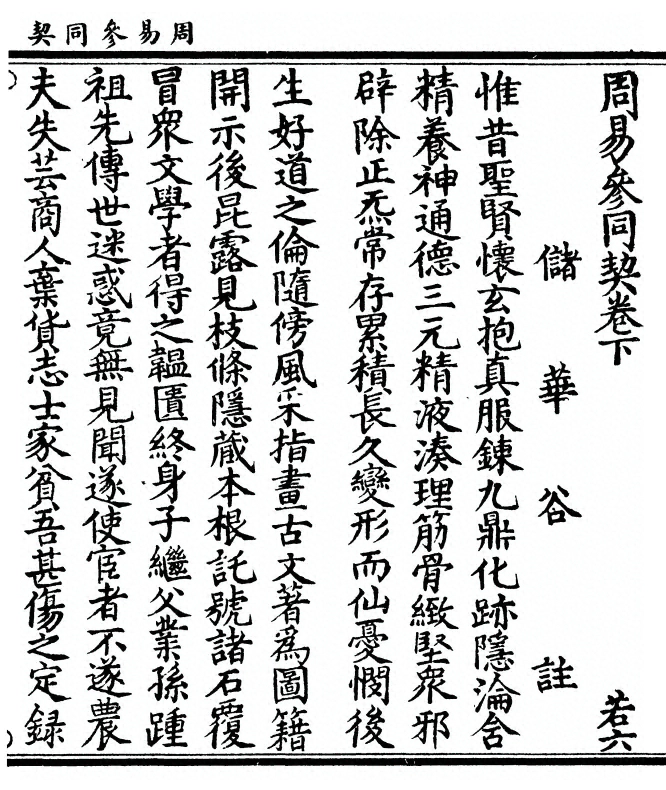 周易參同契
周易參同契卷下 若六
儲華谷註
惟昔聖賢懷玄抱真服鍊九鼎化跡隱淪含
精養神通德三元精液湊理筋骨緻堅衆邪
辟除正炁常存累積長久變形而仙憂憫後
生好道之倫隨傍風采指畫古文著爲圖籍
開示後昆露見枝條隱蔵本根託號諸石覆
冒衆文學者得之韞匱終身子繼父業孫踵
祖先傳世迷惑竟無見聞遂使宦者不遂農
夫失芸商人棄貨志士家貧吾甚傷之定録